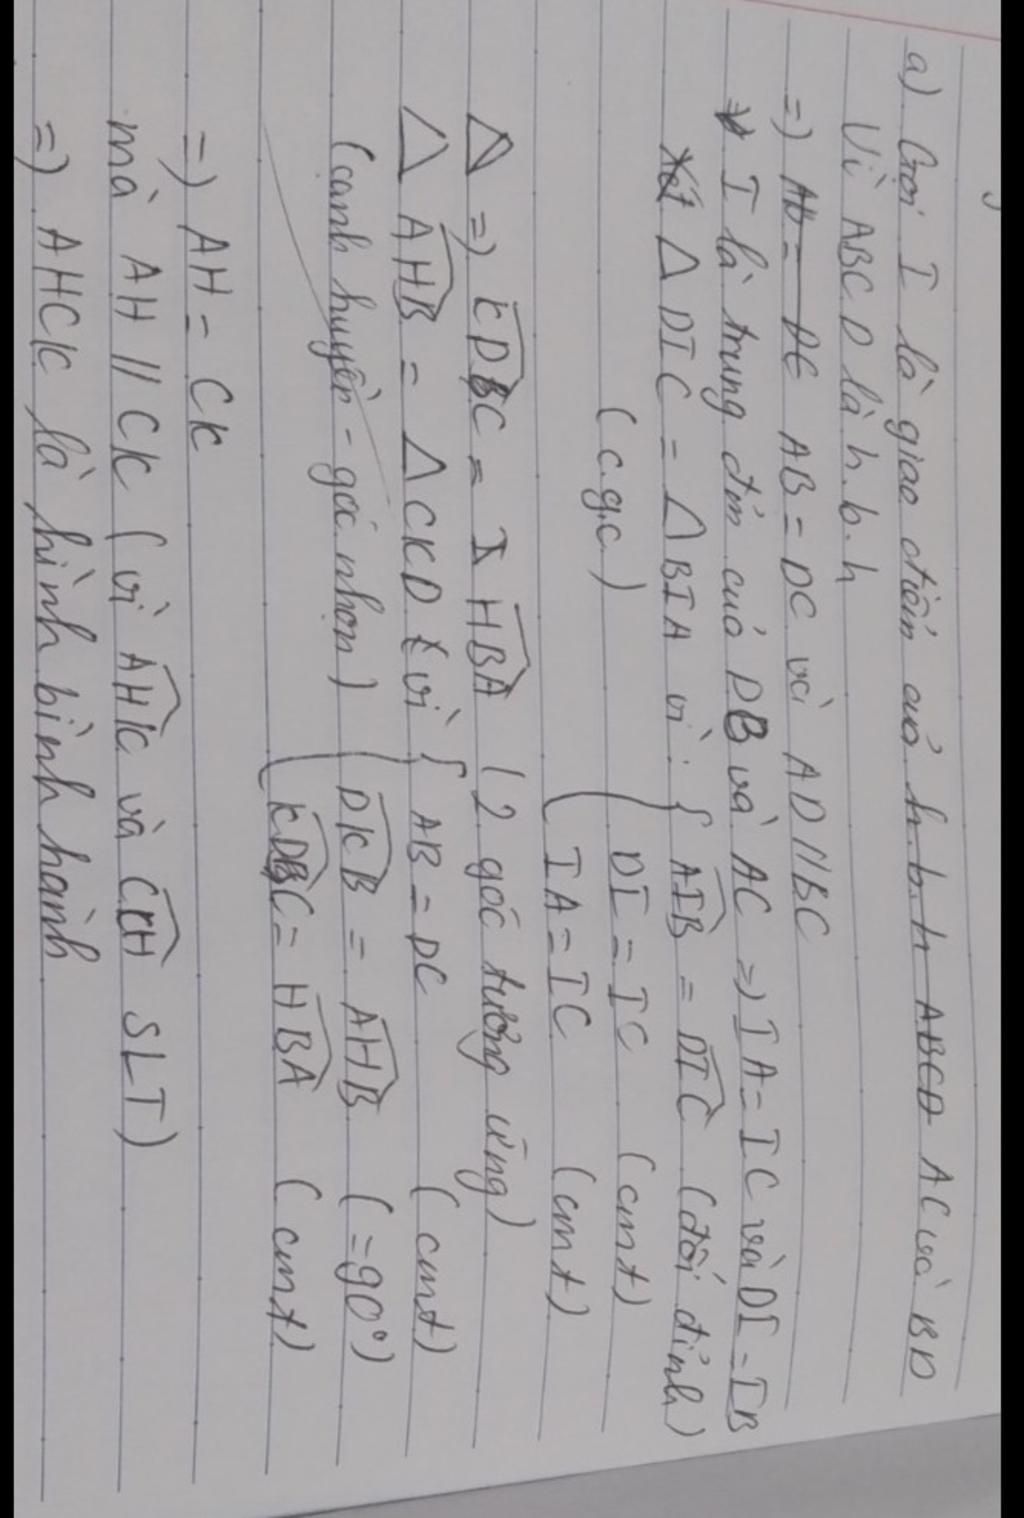 a) Gọi I là giao điểm của h.b.h ABCD AC và BD
Vì ABCD là h.b.h
=) AD = DC AB = DC và AD // BC
I là trung đm của DB và AC =) IA = IC và DI = IB
Xét △ DIC = △ BIA vì : { AIB = DIC (đối đỉnh)
(c.g.c) DI = IC (cmt)
IA = IC (cmt)
△ =) KDC = HBA (2 góc tương ứng)
△ AHB = △ CKD (vì { AB = DC (cmt)
(cạnh huyền - góc nhọn) DKB = AHB (=90°)
KDC = HBA (cmt)
=) AH = CK
mà AH // CK (vì AHK và CKH SLT)
=) AHCK là hình bình hành